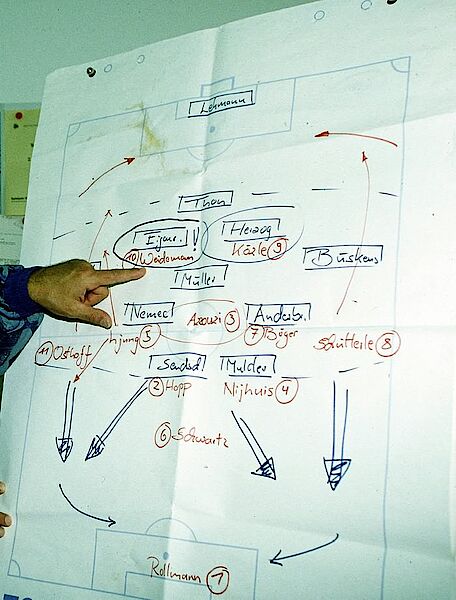 Lehmann
Thon
Eijner. !
Herzog
10 Weidemann
Kärle 9
Büskens
Müller
Nemec
Azouzi 3
Anderbr.
7 Böger
11 Osthoff
Ljung 5
Schütterle 8
Sendsd
Mulder
2 Hopp
Nijhuis 4
6 Schwartz
Rollmann 1